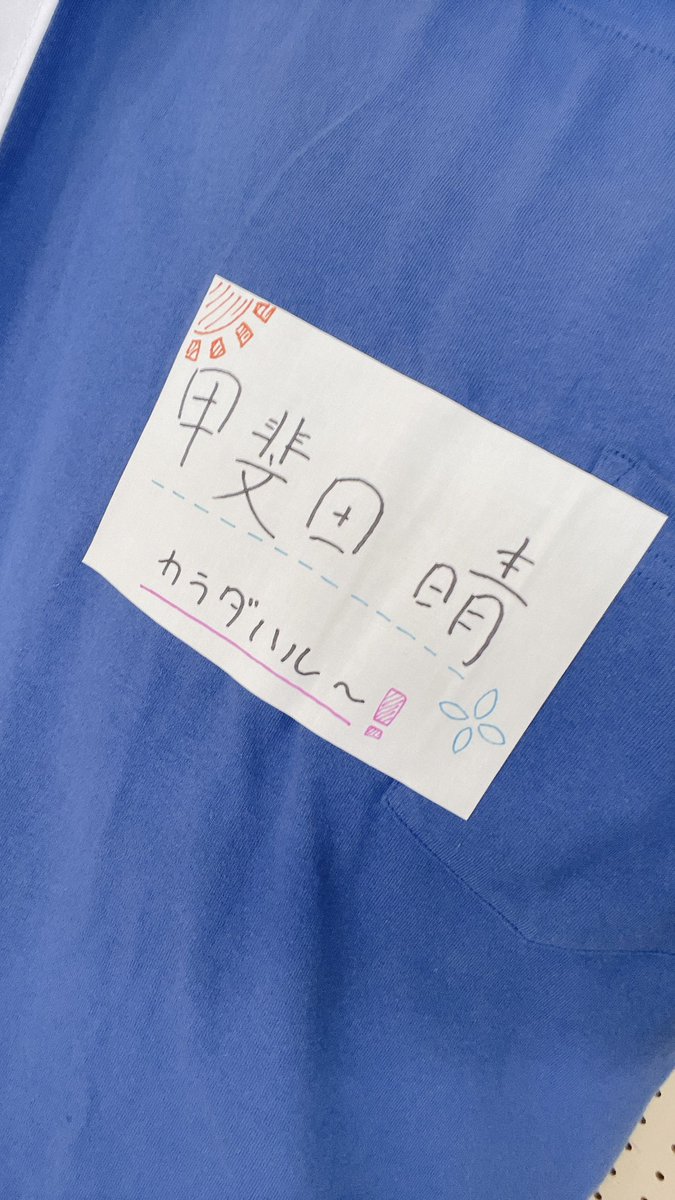 甲斐田 晴
カラダハル〜!